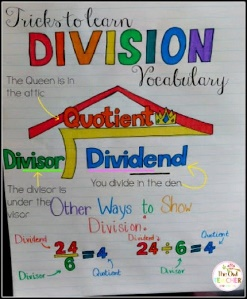 Tricks to learn
DIVISION
Vocabulary
The Queen is in
the attic
Quotient
Divisor
Dividend
The divisor is
under the
visor
You divide in the den
Other Ways to Show
Division:
Dividend
24
6
=4
Divisor
Quotient
Dividend
24÷6=4
Quotient
Divisor
The Owl
TEACHER